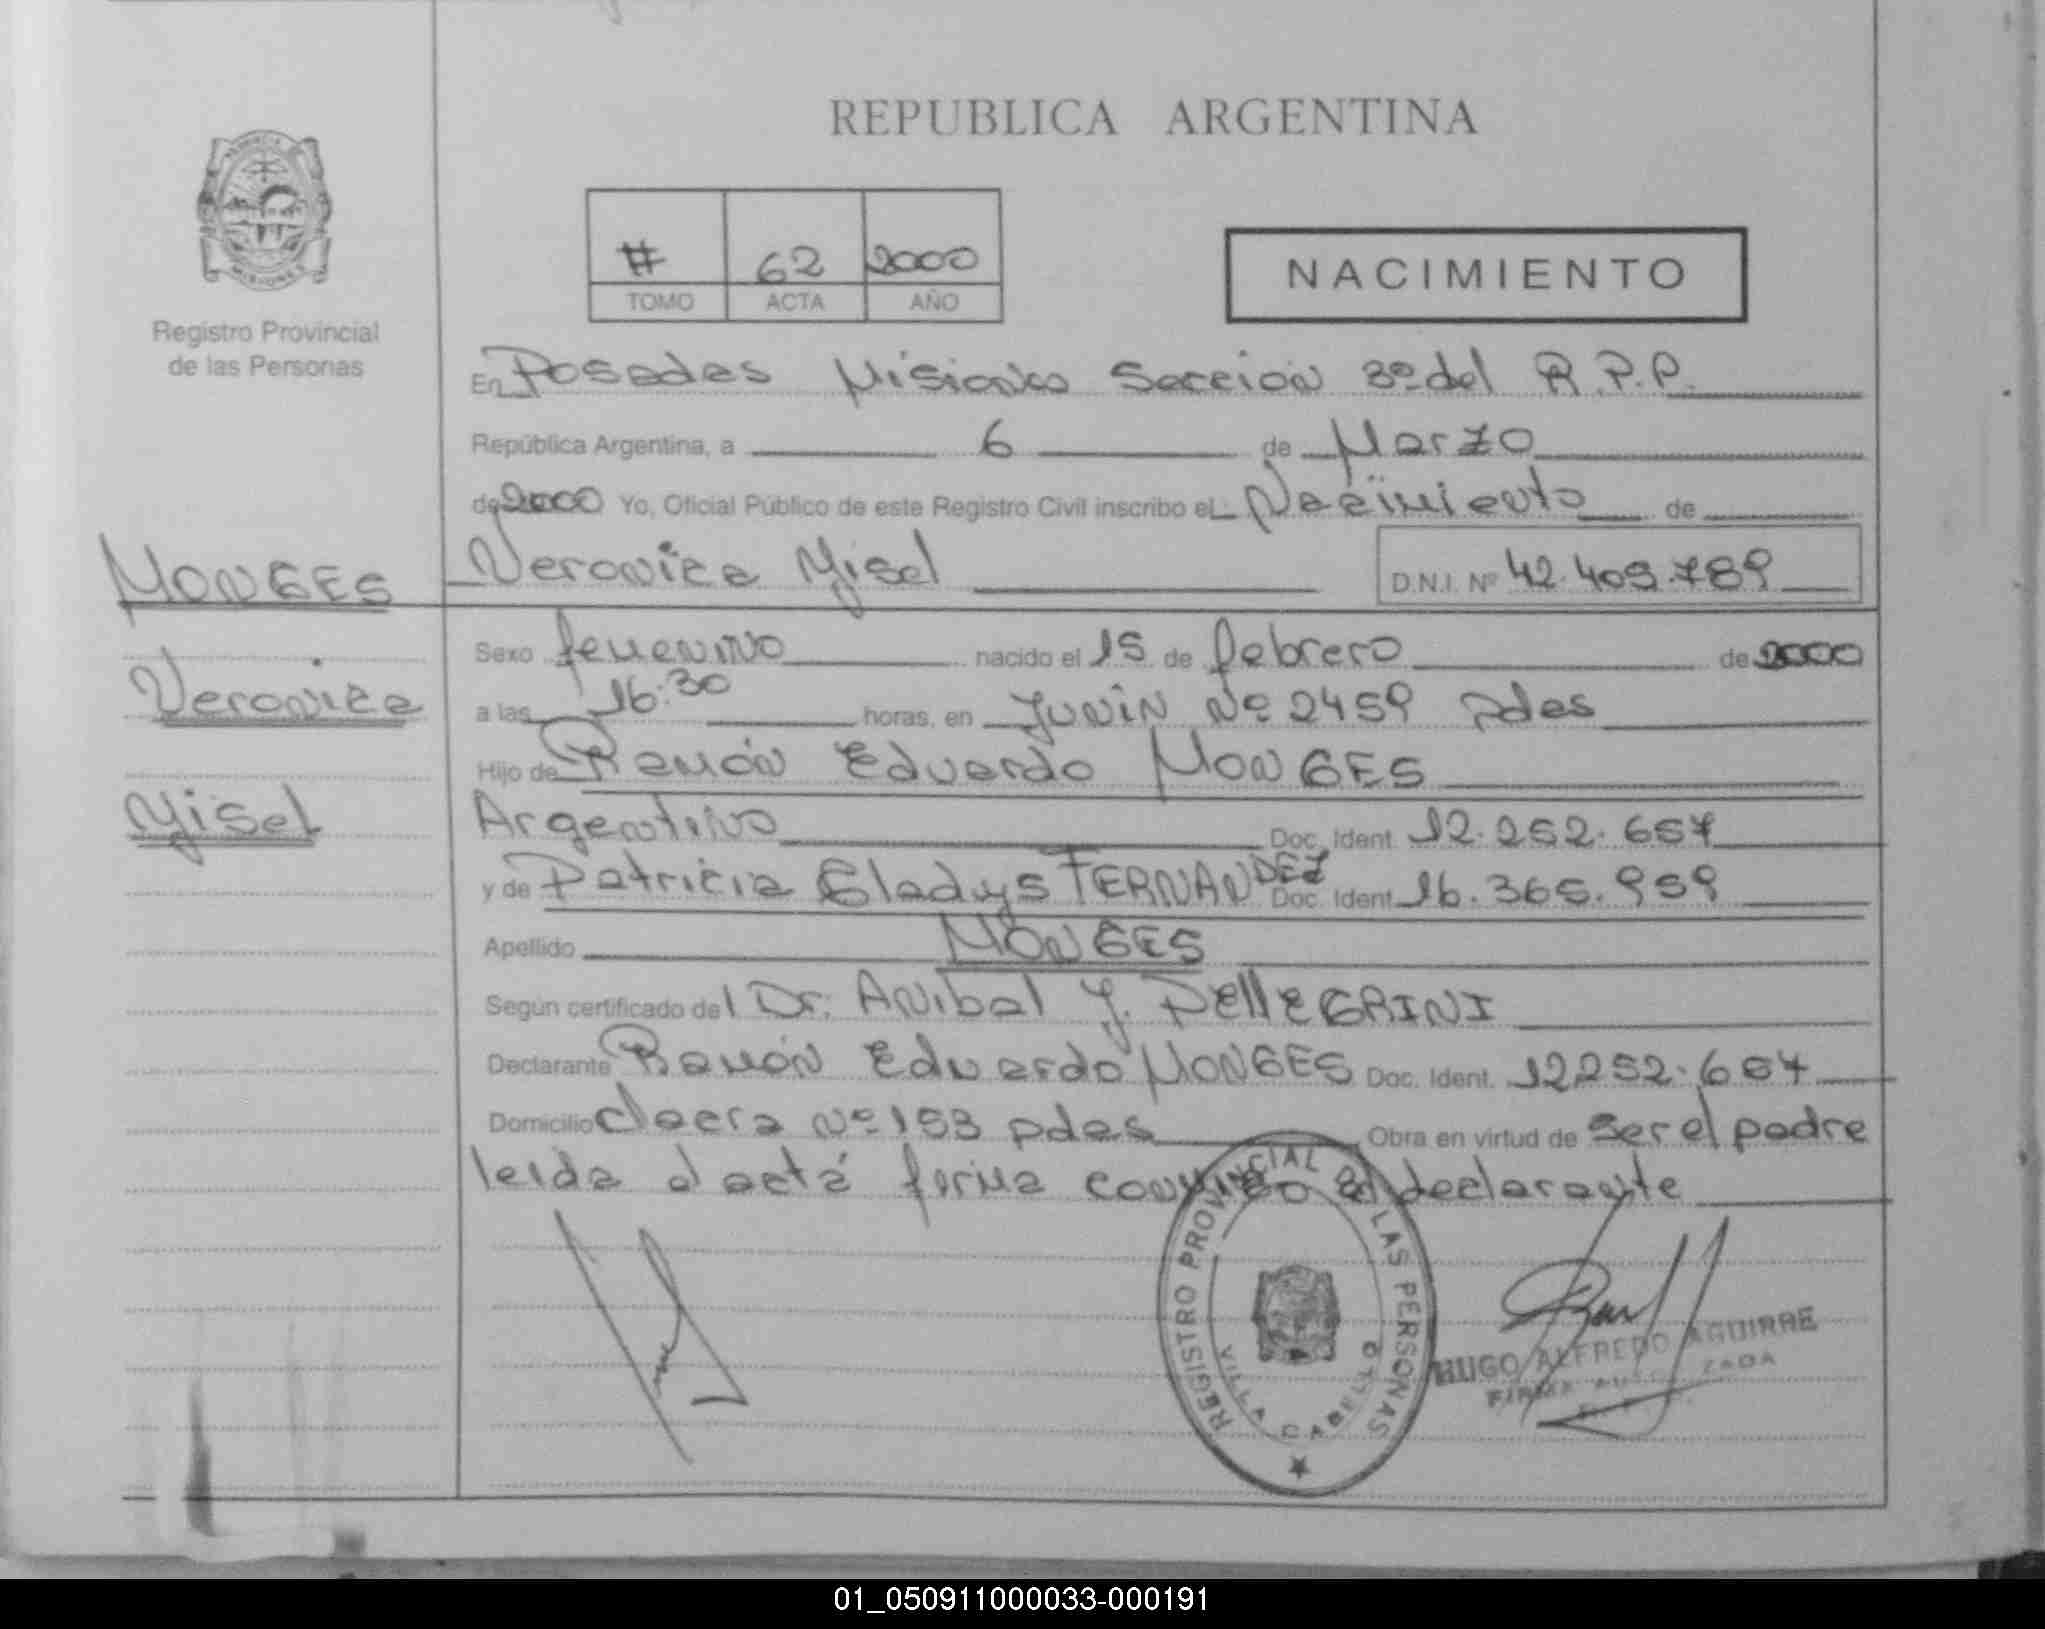 REPUBLICA ARGENTINA
# 62 2000
TOMO ACTA AÑO
NACIMIENTO
Registro Provincial
de las Personas
En Posadas Misiones Seccion 3º del R.P.P.
República Argentina, a 6 de Marzo
de 2000 Yo, Oficial Público de este Registro Civil inscribo el Nacimiento de
Veronica Yisel D.N.I. Nº 42.409.789
MONGES
Veronica
Yisel
Sexo femenino nacido el 15 de febrero de 2000
a las 16:30 horas, en Junin Nº 2459 pdas
Hijo de Ramón Eduardo MONGES
Argentino Doc. Ident. 12.252.657
y de Patricia Gladys FERNANDEZ Doc. Ident. 16.365.959
Apellido MONGES
Según certificado del Dr. Anibal J. PELLEGRINI
Declarante Ramón Eduardo MONGES Doc. Ident. 12252.657
Domicilio Nº 153 pdas Obra en virtud de ser el padre
leida el acta firma conmigo el declarante
REGISTRO PROVINCIAL DE LAS PERSONAS
VILLA CABELLO
HUGO ALFREDO AGUIRRE
FIRMA AUTORIZADA
01_050911000033-000191